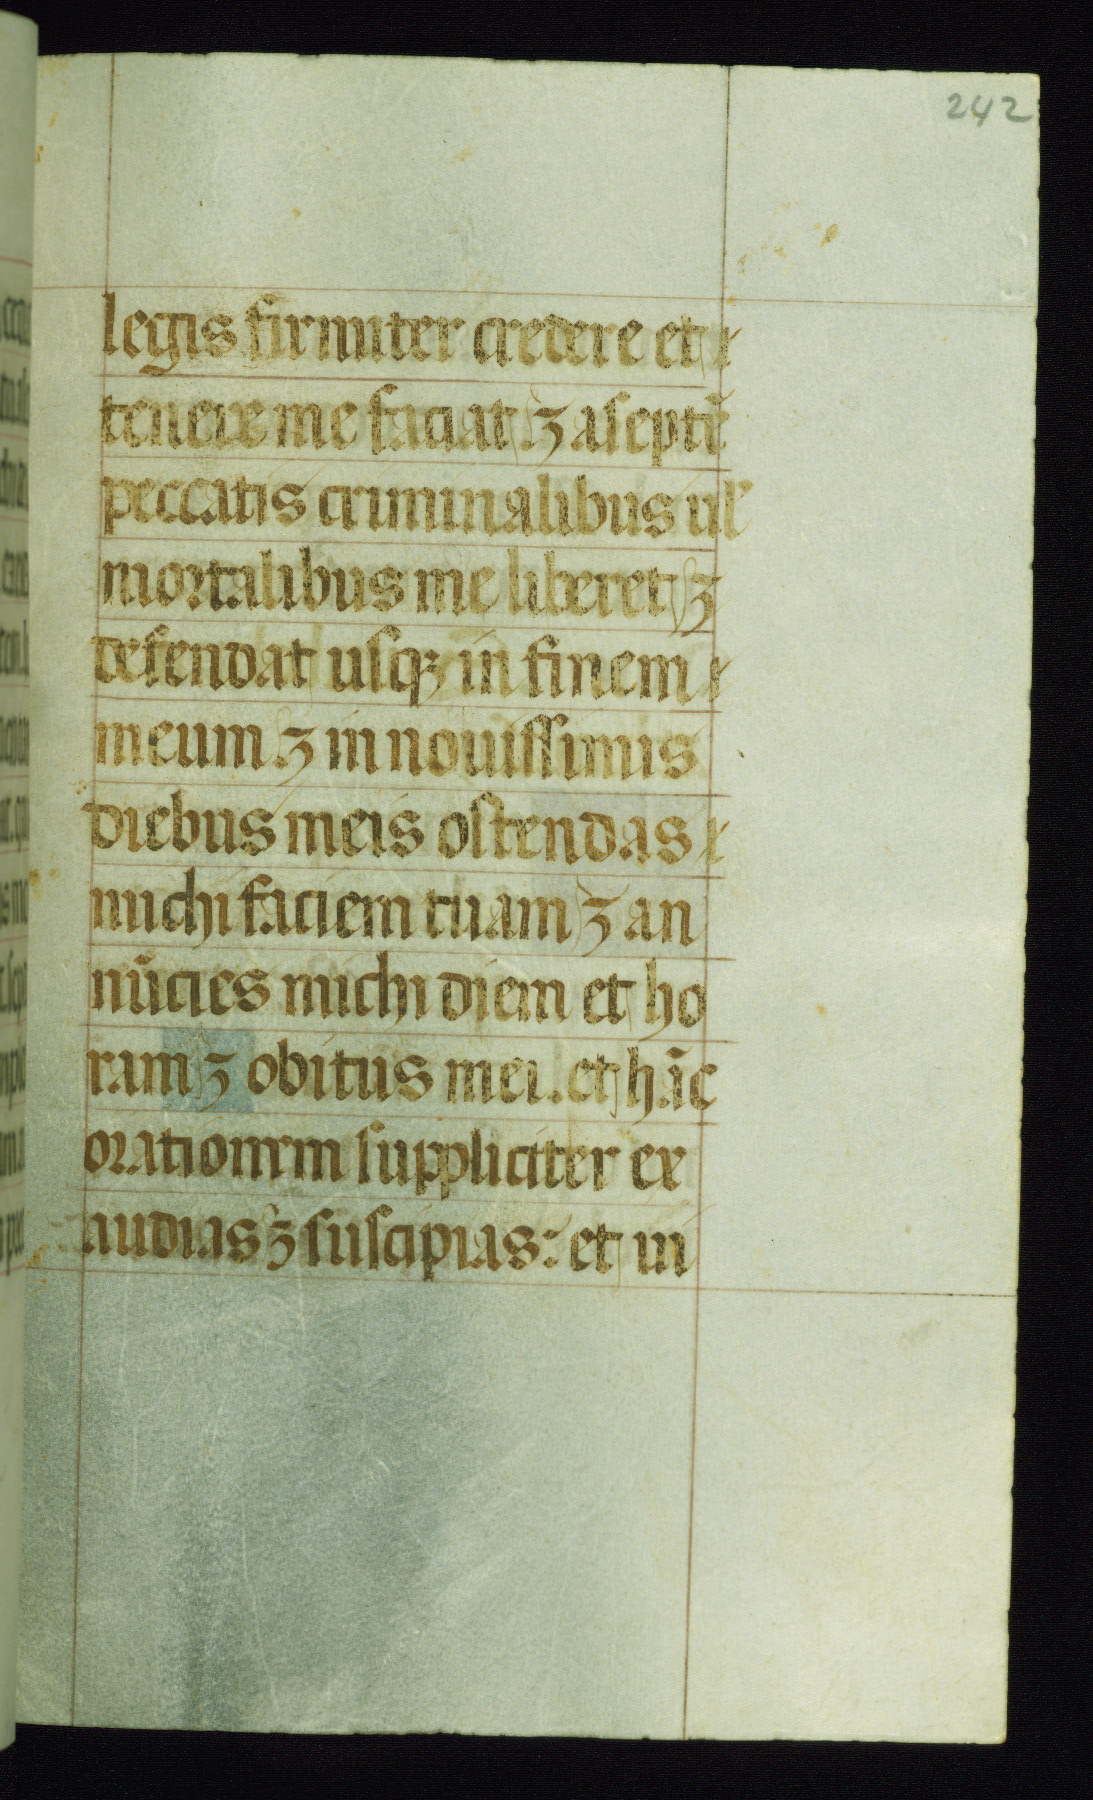 242
legis firmiter credere et
tenere me faciat ⁊ a septē
peccatis criminalibus ul'
mortalibus me liberet ⁊
defendat usqꝫ in finem
meum ⁊ in nouissimis
diebus meis ostendas
michi faciem tuam ⁊ an
nūcies michi diem et ho
ram ⁊ obitus mei. et hāc
orationem suppliciter ex
audias ⁊ suscipias: et ui